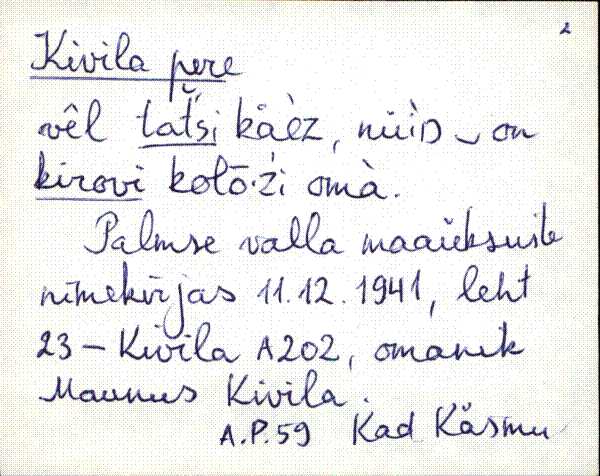 2
Kivila pere
vêl tat́si kä̀ez, nüìD on
kirovi kolō·zi omà.
Palmse valla maaüksuste
nimekirjas 11.12.1941, leht
23 – Kivila A202, omanik
Maunus Kivila.
A.P.59 Kad Käsmu